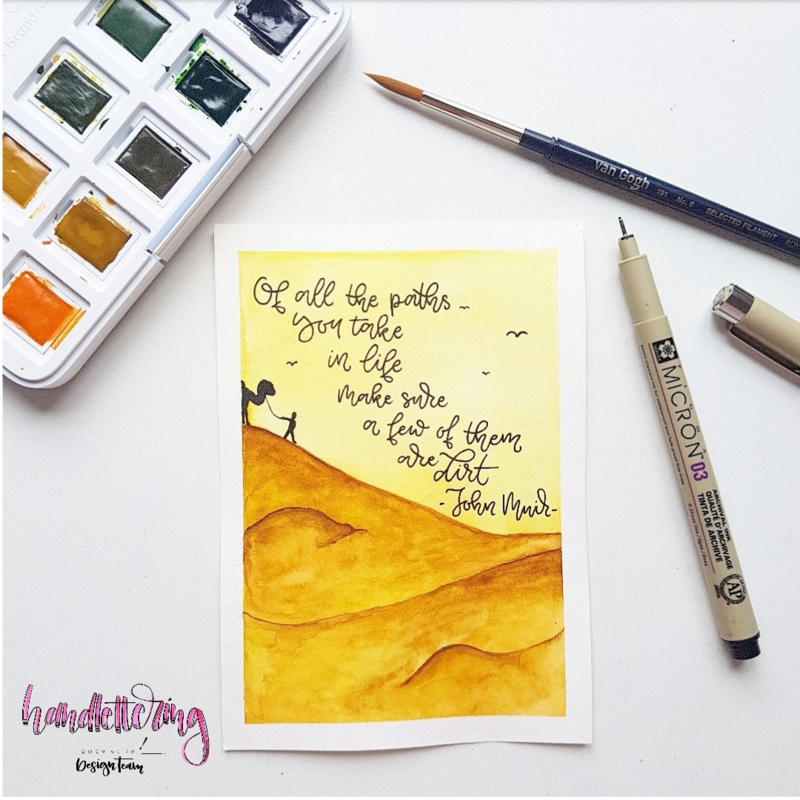 Of all the paths
you take
in life
make sure
a few of them
are dirt
- John Muir -
van Gogh 191 No. 6 SELECTED FILAMENT
MICRON 03
ARCHIVAL INK
QUALITÉ D'ARCHIVAGE
TINTA DE ARCHIVE
AP
handlettering
Design team